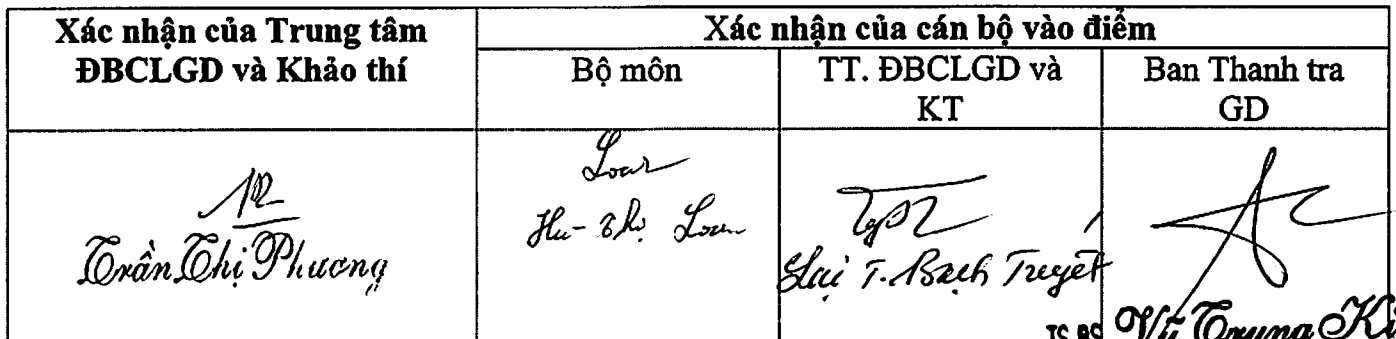 Xác nhận của Trung tâm
ĐBCLGD và Khảo thí
Xác nhận của cán bộ vào điểm
Bộ môn
TT. ĐBCLGD và
KT
Ban Thanh tra
GD
Trần Thị Phương
Thị Loan
Lại T. Bạch Tuyết
Vũ Trung